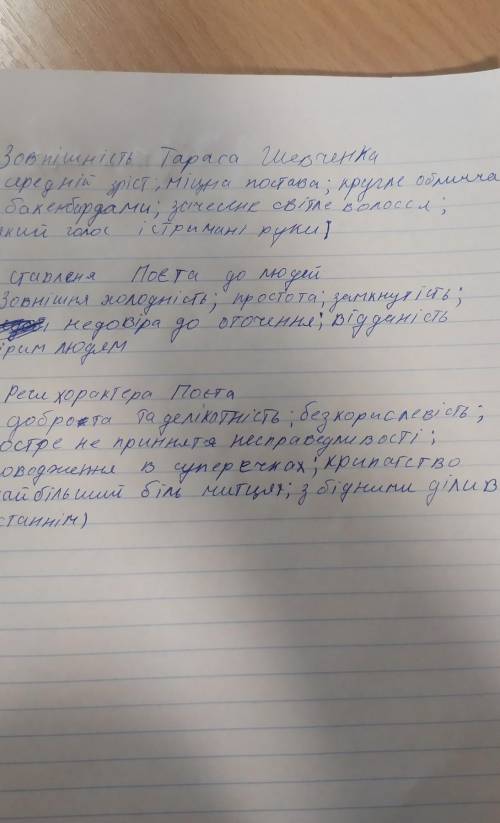 Зовпішність Тараса Шевченка
середній зріст; міцна постава; кругле обличча
бакенбардами; зачесане світле волосся;
який голос і стримані рухи]
ставленя Поета до людей
Зовнішня холодність; простота; замкнутість;
недовіра до оточення; відданість
ірим людям
Реси хорактера Поета
доброта та делікатність; безкорислевість;
остре не приннятя несправедливості;
оводження в суперечках; крипатство
айбільший біль митця; з бідними ділив
станнім)